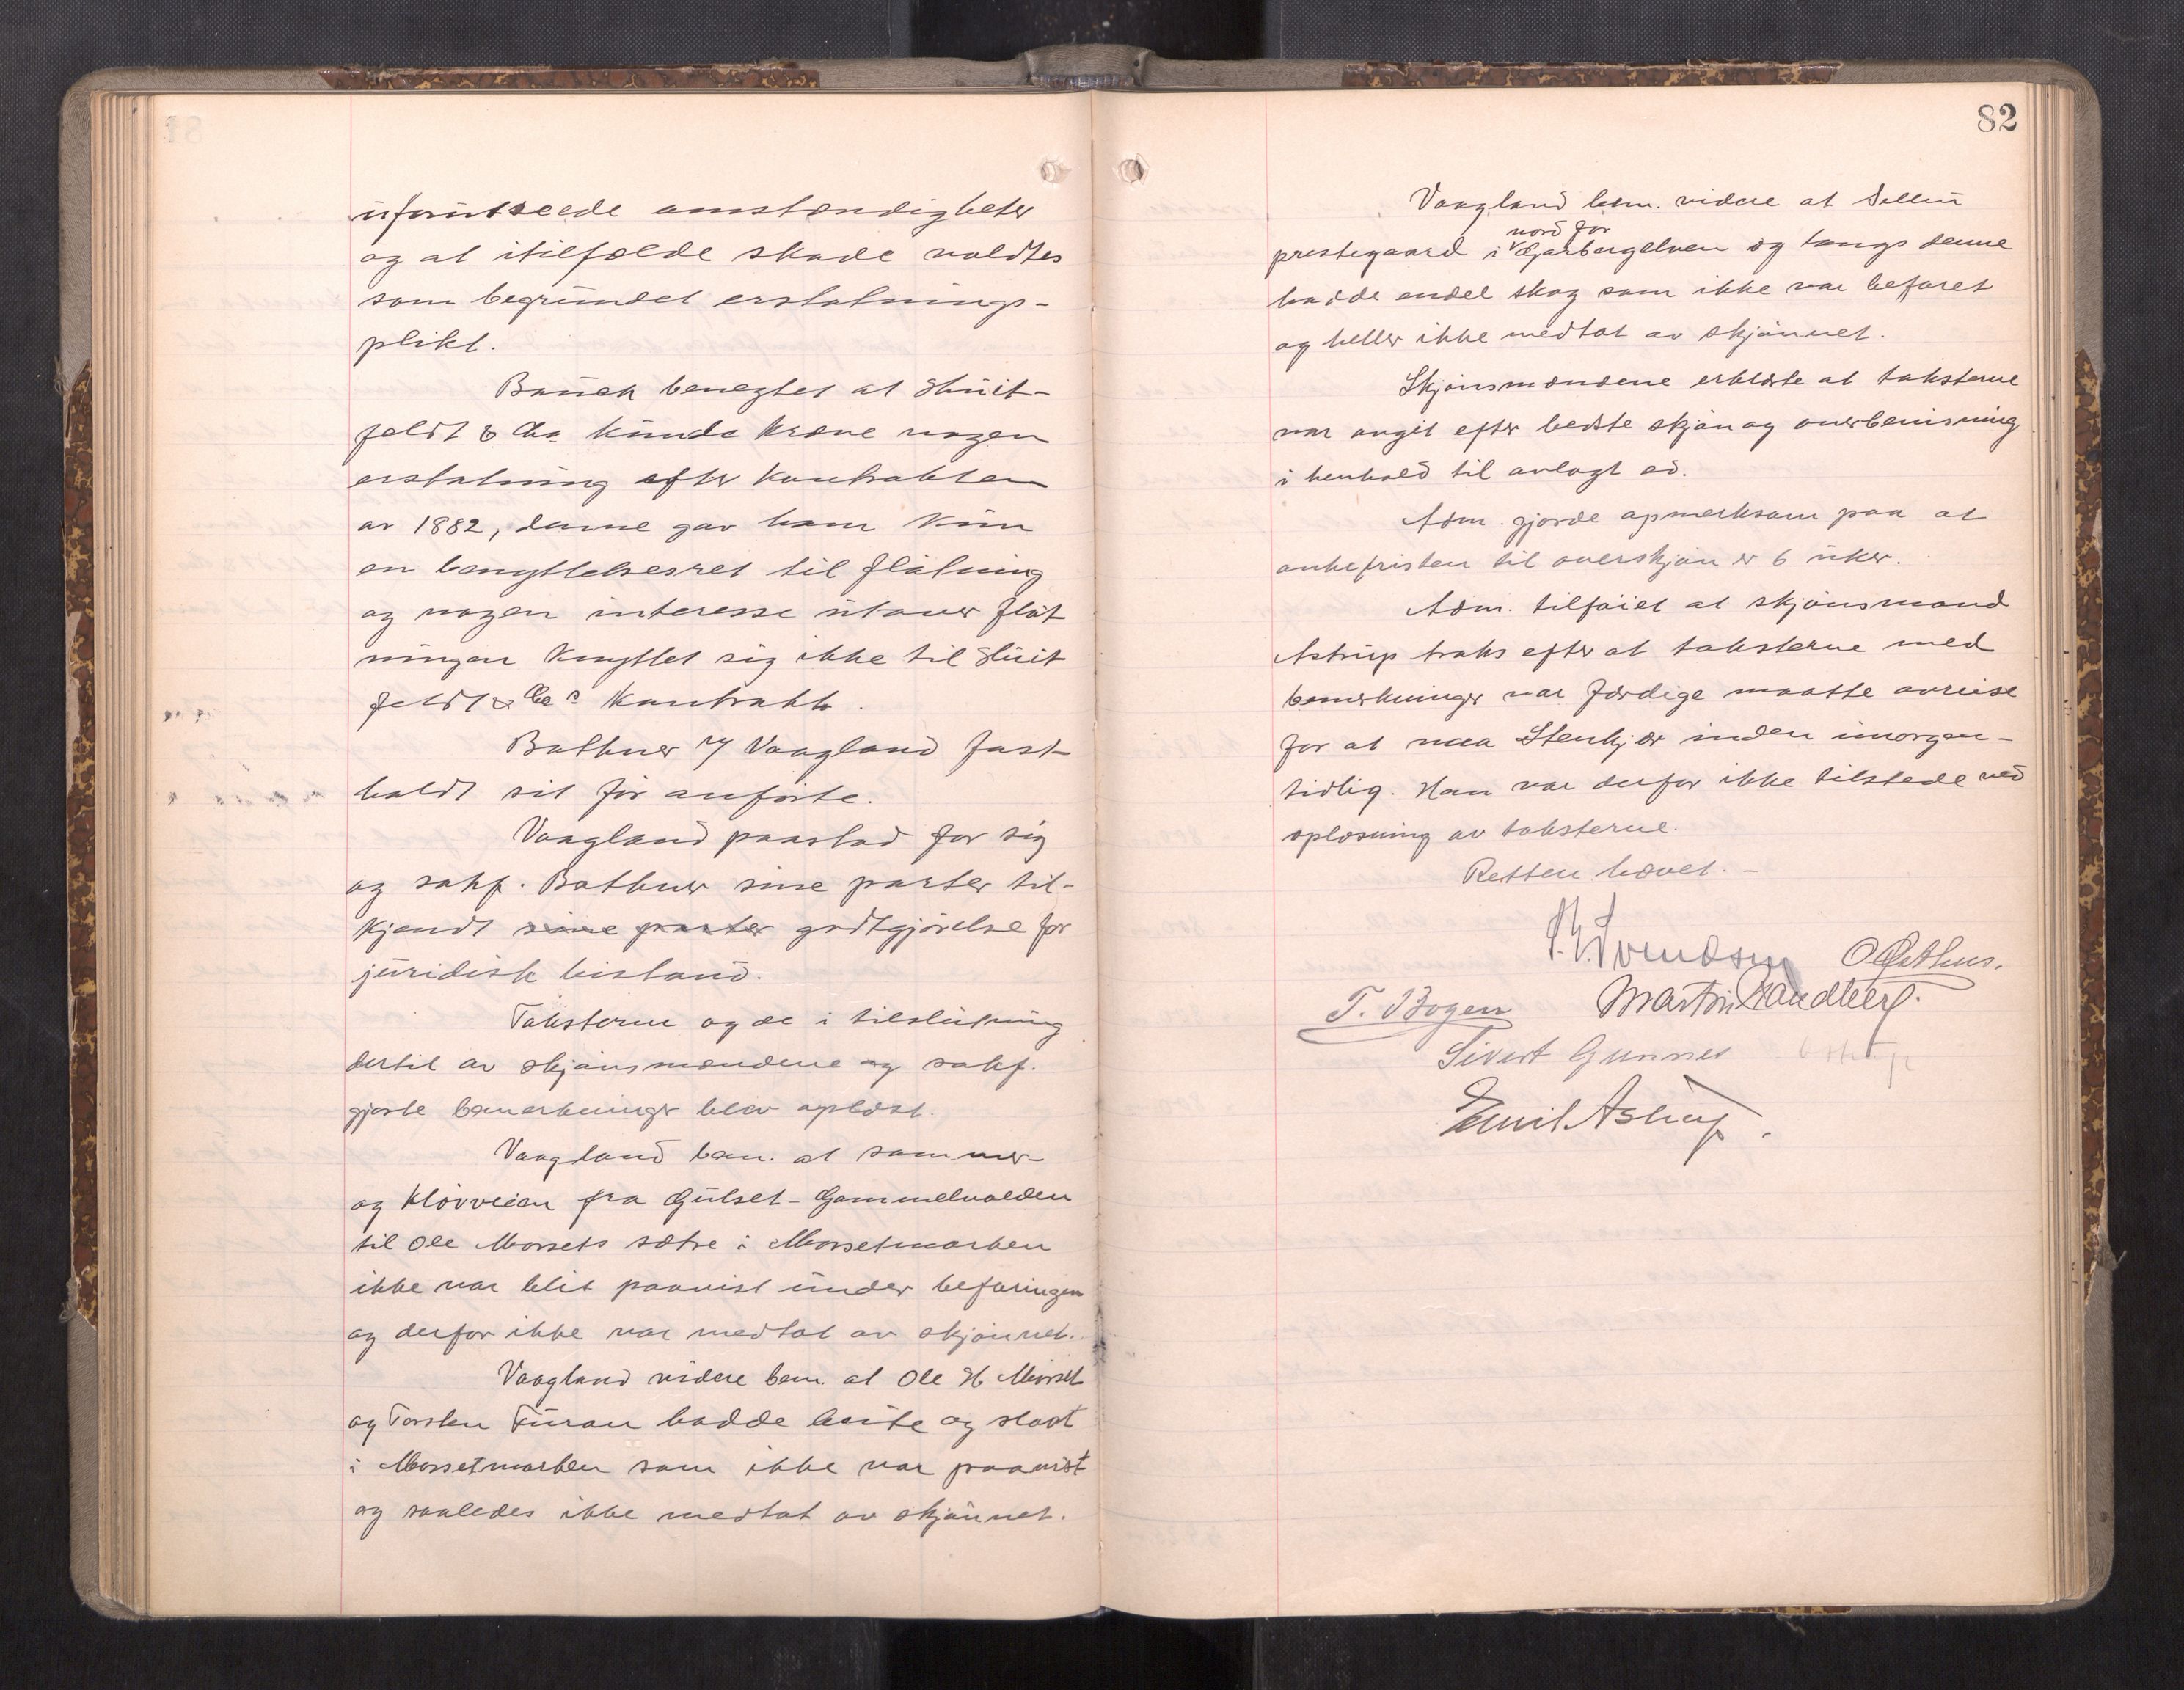 uforutseede omstændigheter
og at itilfælde skade voldtes
som begrundet erstatnings-
plikt.
Bauck benegtet at Huit-
feldt & Co kunde kræve nogen
erstatning efter kontrakten
av 1882, denne gav ham kun
en benyttelsesret til flötning
og nogen interesse utover flöt
ningen knyttet sig ikke til Huit
feldt & Co s kontrakt.
Bathner & Vaagland fast-
holdt sit för anförte.
Vaagland paastod for sig
og sakf. Bathner sine parter til-
kjendt sine parter godtgjörelse for
juridisk bistand.
Taksterne og de i tilslutning
dertil av skjönsmændene og sakf.
gjorte bemerkninger blev oplæst.
Vaagland bem. at sommer-
og klövveien fra Gulset-Gammelvolden
til Ole Morsets sætre i Morsetmarken
ikke var blit paavist under befaringen
og derfor ikke var medtat av skjönnet.
Vaagland videre bem. at Ole H Morset
og Torsten Furan hadde beite og slaat
i Morsetmarken som ikke var paavist
og saaledes ikke medtat av skjönnet.
82
Vaagland bem. videre at Selbu
nord for
prestegaard i Garbergelven og langs denne
hadde endel skog som ikke var befaret
og heller ikke medtat av skjönnet.
Skjönsmændene erklærte at taksterne
var avgit efter bedste skjön og overbevisning
i henhold til avlagt ed.
Adm. gjorde opmerksom paa at
ankefristen til overskjön er 6 uker.
Adm. tilföiet at skjönsmand
Astrup straks efter at taksterne med
bemerkninger var færdige maatte avreise
for at naa Stenkjær inden imorgen-
tidlig. Han var derfor ikke tilstede ved
oplæsning av taksterne.
Retten hævet. -
Svendsen
T. Bogen Martin Sandberg.
Sivert Gunnes
Emil Astrup.